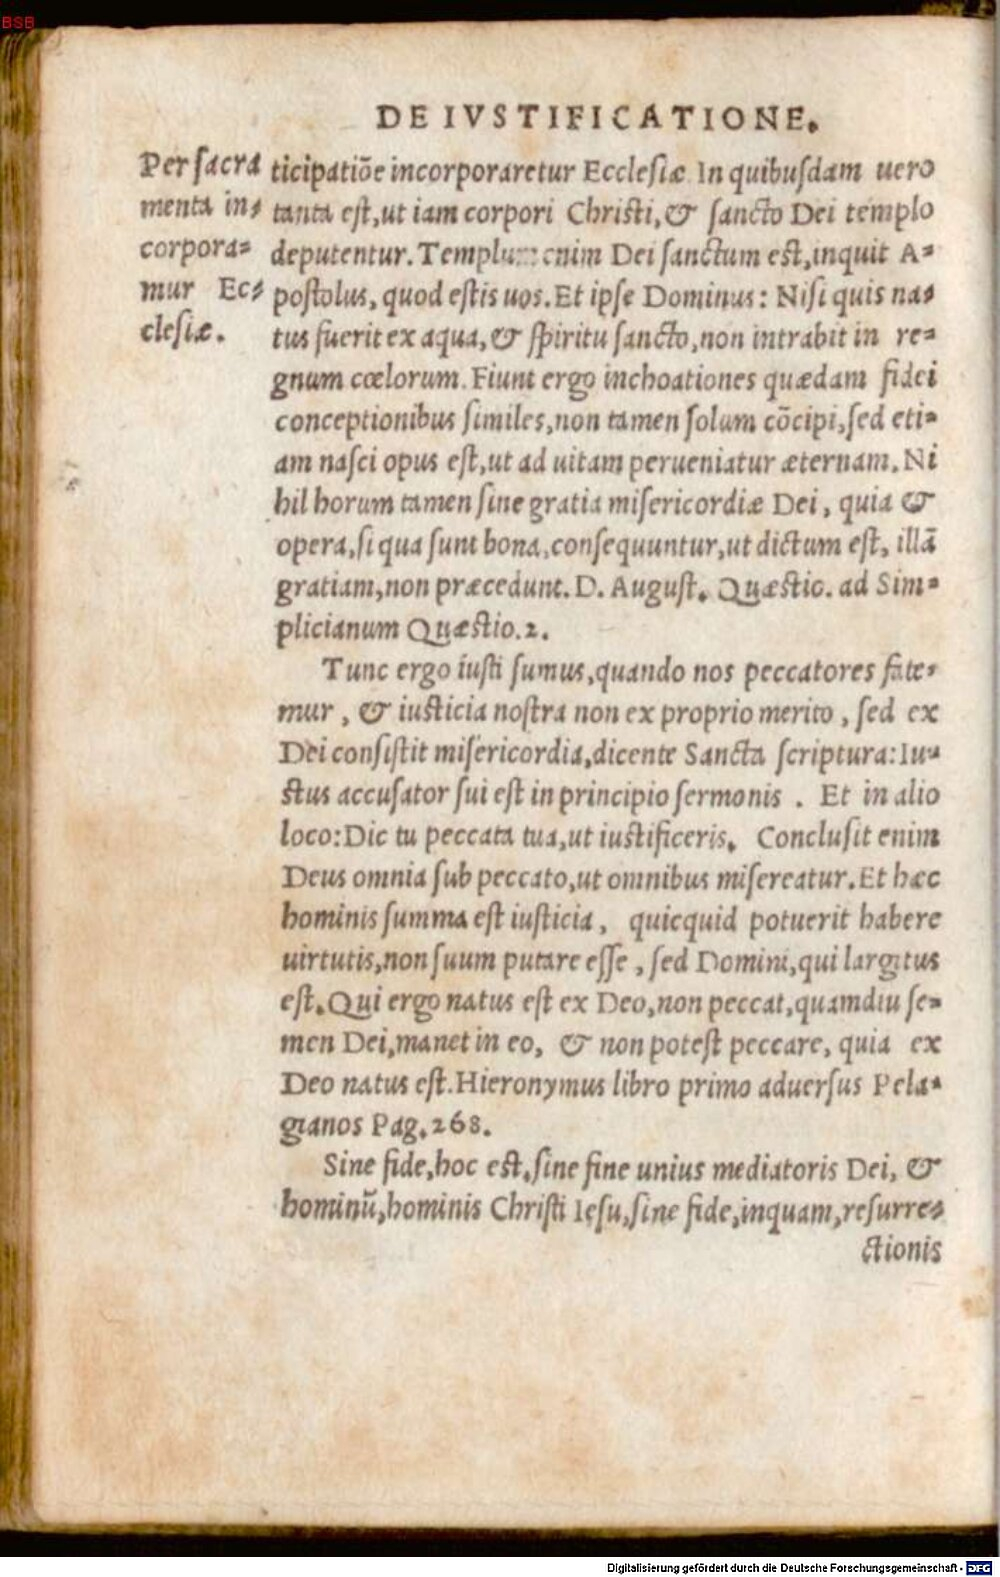 BSB
DE IVSTIFICATIONE.
Per sacra
menta in⸗
corpora⸗
mur Ec⸗
clesiæ.
ticipatiõe incorporaretur Ecclesiæ. In quibusdam uero
tanta est, ut iam corpori Christi, & sancto Dei templo
deputentur. Templum enim Dei sanctum est, inquit A⸗
postolus, quod estis uos. Et ipse Dominus: Nisi quis na⸗
tus fuerit ex aqua, & spiritu sancto, non intrabit in re⸗
gnum cœlorum. Fiunt ergo inchoationes quædam fidei
conceptionibus similes, non tamen solum cõcipi, sed eti⸗
am nasci opus est, ut ad uitam perueniatur æternam. Ni
hil horum tamen sine gratia misericordiæ Dei, quia &
opera, si qua sunt bona, consequuntur, ut dictum est, illã
gratiam, non præcedunt. D. August. Quæstio. ad Sim⸗
plicianum Quæstio. 2.
Tunc ergo iusti sumus, quando nos peccatores fate⸗
mur, & iusticia nostra non ex proprio merito, sed ex
Dei consistit misericordia, dicente Sancta scriptura: Iu⸗
stus accusator sui est in principio sermonis. Et in alio
loco: Dic tu peccata tua, ut iustificeris. Conclusit enim
Deus omnia sub peccato, ut omnibus misereatur. Et hæc
hominis summa est iusticia, quicquid potuerit habere
uirtutis, non suum putare esse, sed Domini, qui largitus
est. Qui ergo natus est ex Deo, non peccat, quamdiu se⸗
men Dei, manet in eo, & non potest peccare, quia ex
Deo natus est. Hieronymus libro primo aduersus Pela⸗
gianos Pag. 268.
Sine fide, hoc est, sine fine unius mediatoris Dei, &
hominũ, hominis Christi Iesu, sine fide, inquam, resurre⸗
ctionis
Digitalisierung gefördert durch die Deutsche Forschungsgemeinschaft - DFG